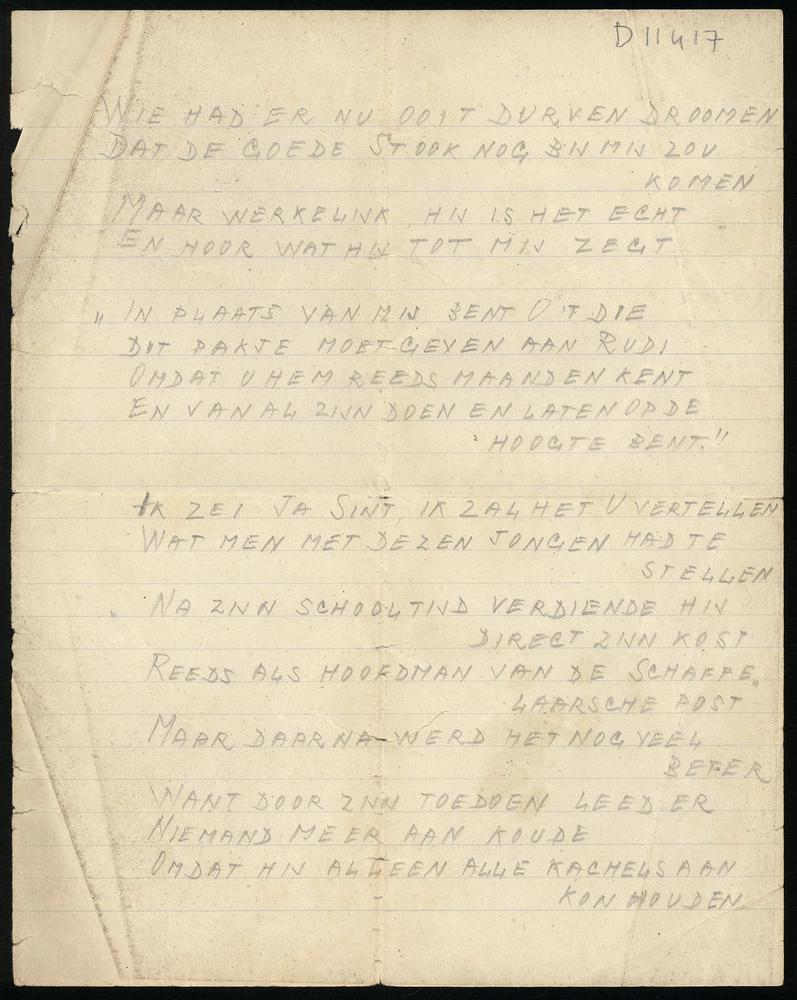 D11417
WIE HAD ER NU OOIT DURVEN DROOMEN
DAT DE GOEDE STOOK NOG BIJ MIJ ZOU
KOMEN
MAAR WERKELIJK, HIJ IS HET ECHT
EN HOOR WAT HIJ TOT MIJ ZEGT
„ IN PLAATS VAN MIJ BENT U 'T DIE
DIT PAKJE MOET GEVEN AAN RUDI
OMDAT U HEM REEDS MAANDEN KENT
EN VAN AL ZIJN DOEN EN LATEN OP DE
HOOGTE BENT."
IK ZEI JA SINT, IK ZAL HET U VERTELLEN
WAT MEN MET DEZEN JONGEN HAD TE
STELLEN
NA ZIJN SCHOOLTIJD VERDIENDE HIJ
DIRECT ZIJN KOST
REEDS ALS HOOFDMAN VAN DE SCHAFFE„
LAARSCHE POST
MAAR DAARNA WERD HET NOG VEEL
BETER
WANT DOOR ZIJN TOEDOEN LEED ER
NIEMAND MEER AAN KOUDE
OMDAT HIJ ALLEEN ALLE KACHELS AAN
KON HOUDEN